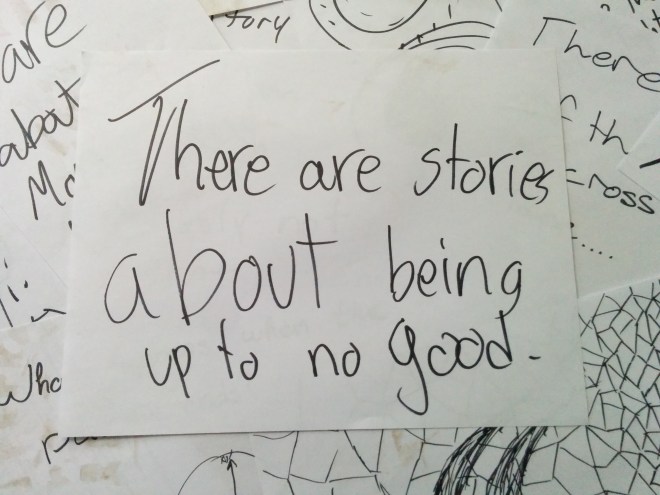 There are stories
about being
up to no good.
are
about
tory
There
th
cross
.....
Who